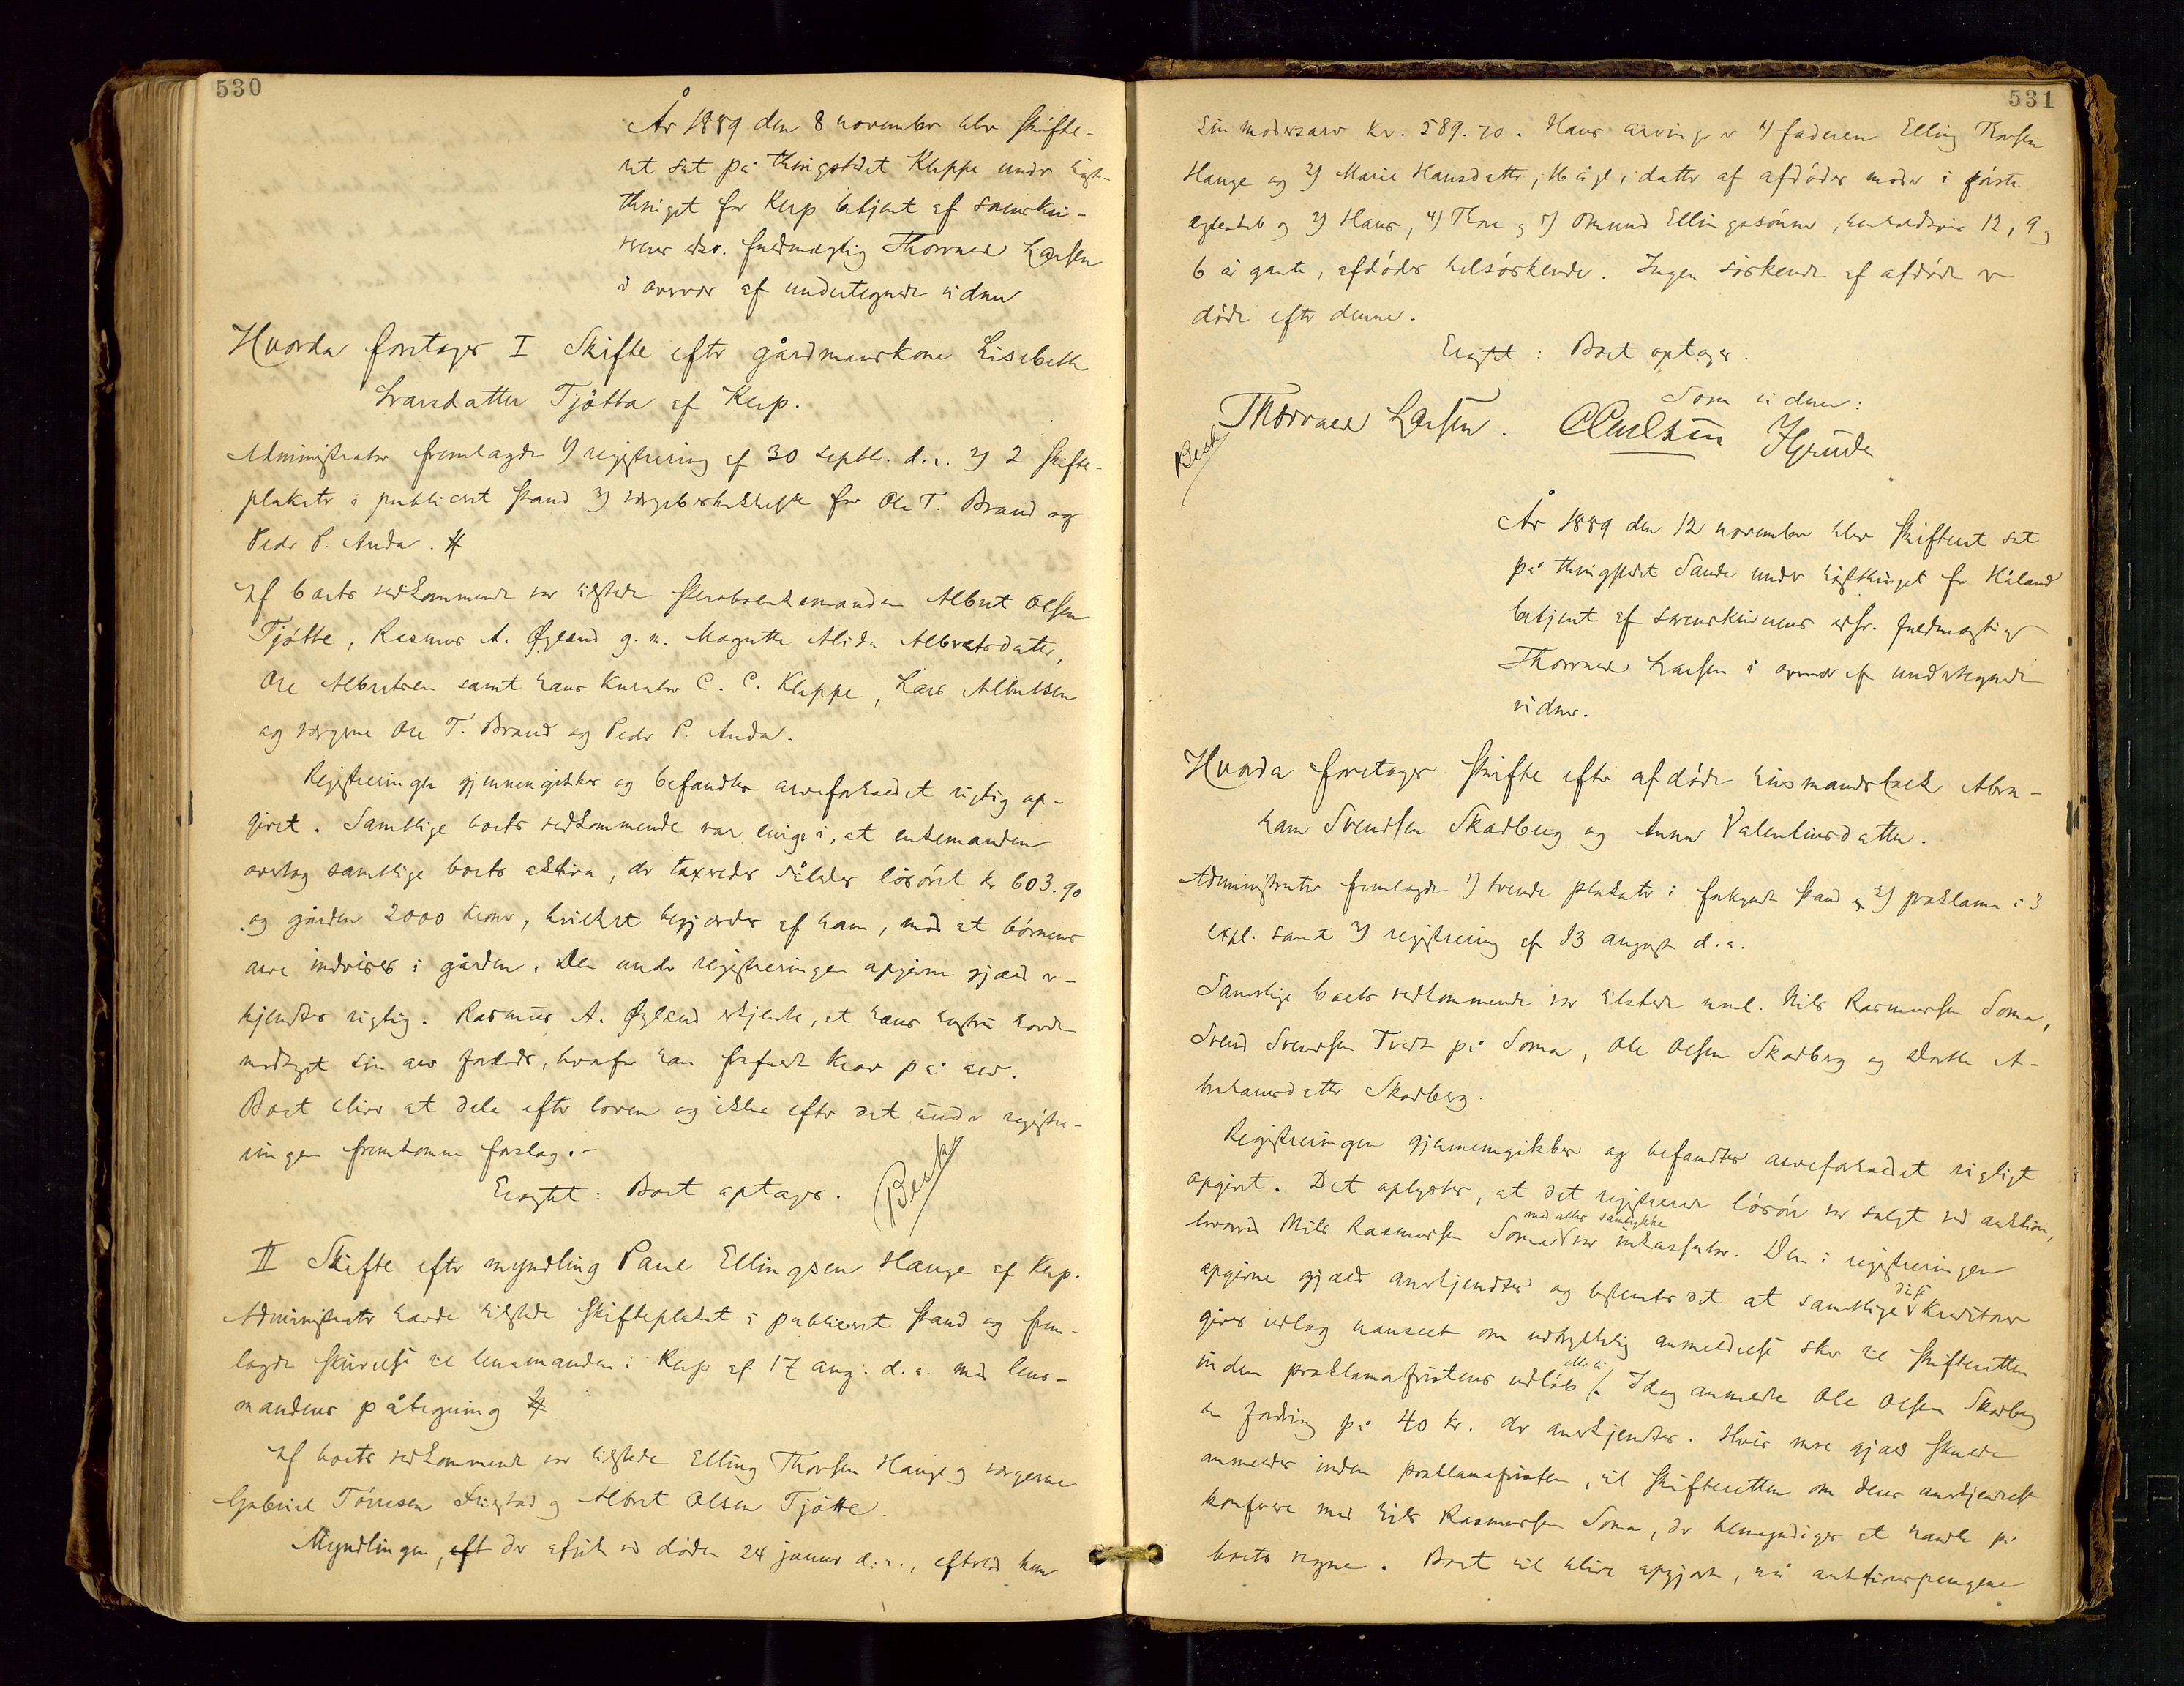 530
År 1889 den 8 november blev skifte-
ret sat på thingstedet Kleppe under høst-
thinget for Klep betjent af sorenskri-
verens edsv. fuldmægtig Thorvald Larsen
i overvær af undertegnede vidner
Hvorda foretoges I Skifte efter gårdmandskone Lisebeth
Ivarsdatter Tjøtta af Klep.
Administrator fremlagde 1) registrering af 30 septbr. d. a. 2) 2 skifte-
plakater i publiceret stand 3) værgebeskikkelse for Ole T. Braud og
Peder P. Anda. #
Af boets vedkommende var tilstede enkemanden Albert Olsen
Tjøtte, Rasmus A. Øgland g. m. Magrethe Alida Albretsdatter,
Ole Albretsen samt hans kurator C. C. Kleppe, Lars Albretsen
og værgerne Ole T. Braud og Peder P. Anda.
Registreringen gjennemgikkes og befandtes arveforholdet rigtig op-
givet. Samtlige boets vedkommende var enige i, at enkemanden
overtog samtlige boets aktiva, der taxeredes således løsøret kr 603.90
og gården 2000 kroner, hvilket begjærdes af ham, mod at børnenes
arv indvises i gården. Den under registreringen opgivne gjæld er-
kjendtes rigtig. Rasmus A. Øgland erkjente, at hans hustru havde
modtaget sin arv forlods, hvorfor han frafaldt krav på arv.
Boet bliver at dele efter loven og ikke efter det under registre-
ringen fremkomne forslag.-
Eragtet: Boet optages.
Besk
II Skifte efter myndling Paul Ellingsen Hauge af Klep.
Administrator havde tilstede skifteplakat i publiceret stand og frem-
lagde skrivelse til lensmanden i Klep af 17 aug. d. a. med lens-
mandens påtegning #
Af boets vedkommende var tilstede Elling Thorsen Hauge og værgerne
Gabriel Tønnesen Friestad og Albret Olsen Tjøtte.
Myndlingen, der afgik ved døden 24 januar d. a., efterlod kun
531
sin mødrearv kr. 589.70. Hans arvinger er 1) faderen Elling Thorsen
Hauge og 2) Marie Hansdatter, 16 år gl, datter af afdødes moder i første
ægteskab og 3) Hans, 4) Thore og 5) Omund Ellingssønner, henholdsvis 12, 9 og
6 år gamle, afdødes helsøskende. Ingen søskende af afdøde er
døde efter denne.
Eragtet: Boet optages.
Som vidner:
Thorvald Larsen. C Carlsen
Besk
År 1889 den 12 november blev skifteret sat
på thingstedet Sande under høstthinget for Håland
betjent af sorenskriverens edsv. fuldmægtig
Thorvald Larsen i overvær af undertegnede
vidner.
Hvorda foretoges skifte efter afdøde husmandsfolk Abra-
ham Svendsen Skadberg og Anna Valentinsdatter.
Administrator fremlagde 1) tvende plakater i forkyndt stand og 2) proklama i 3
expl. samt 3) registrering af 13 august d. a.
Samtlige boets vedkommende var tilstede nml. Nils Rasmussen Soma,
Svend Svendsen Tvedt på Soma, Ole Olsen Skadberg og Dorthe A-
brahamsdatter Skadberg.
Registreringen gjennemgikkes og befandtes arveforholdet rigtigt
opgivet. Det oplystes, at det registrerede løsøre var solgt ved auktion,
med alles samtykke
hvorved Nils Rasmussen Soma var inkassator. Den i registreringen
opgivne gjæld anerkjendtes og besluttedes det at samtlige disse kreditorer
gives udlag uanseet om udtrykkelig anmeldelse sker til skifteretten
inden proklamafristens udløb eller ei. Idag anmeldte Ole Olsen Skadberg
en fordring på 40 kr. der anerkjendtes. Hvis mere gjæld skulde
anmeldes inden proklamafristen, vil skifteretten om dens anerkjendelse
konferere med Nils Rasmussen Soma, der bemyndiges at handle på
boets vegne. Boet vil blive opgjort, når auktionspengene